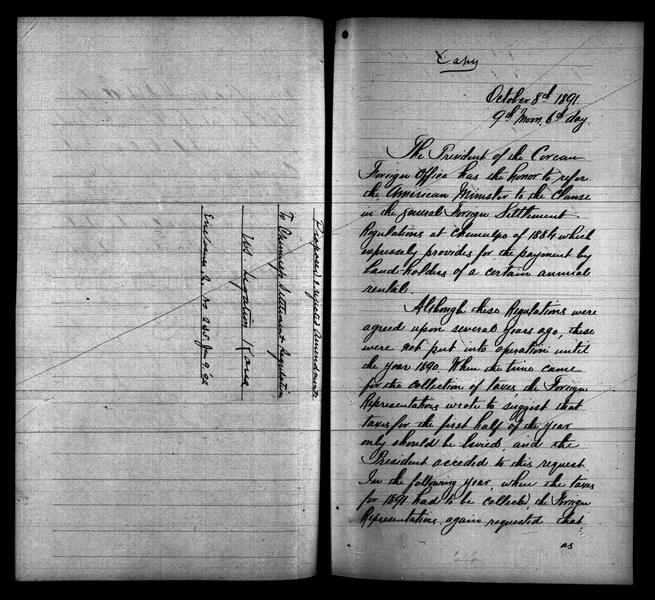 Proposed & rejected Amendments
To Chemulpo Settlement Regulations
U.S. Legation Korea
Enclosure 2. No 235. Jan 9, '92
Copy
October 8th 1891.
9th Moon, 6th day.
The President of the Corean
Foreign Office has the honor to refer
the American Minister to the Clause
in the general Foreign Settlement
Regulations at Chemulpo of 1884 which
expressly provides for the payment by
land-holders of a certain annual
rental.
Although these Regulations were
agreed upon several years ago, these
were not put into operation until
the year 1890. When the time came
for the collection of taxes the Foreign
Representatives wrote to suggest that
taxes for the first half of the year
only should be levied, and the
President acceded to this request.
In the following year, when the taxes
for 1891 had to be collected, the Foreign
Representatives again requested that
as